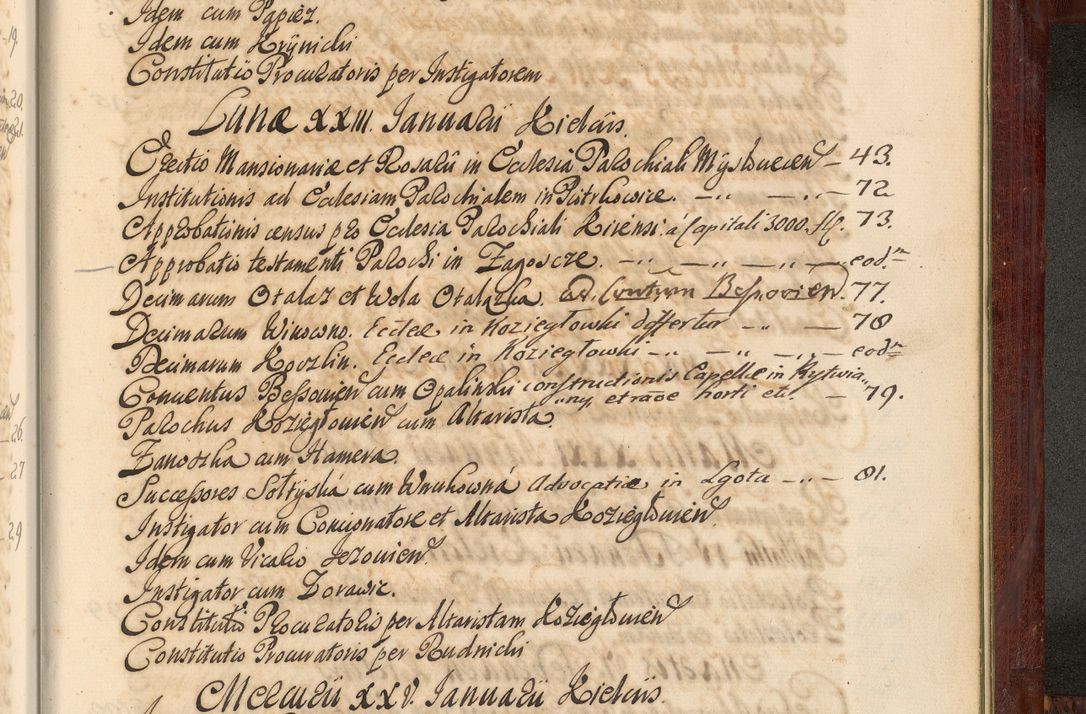 Idem cum Papiez.
Idem cum Krÿnicki
Constitutio Procuratoris per Instigatorem
Lunæ XXIII. Januarii Kielcijs.
Erectio Mansionariæ et Rosarii in Ecclesia Parochiali Mysłowicen — 43.
Institutionis ad Ecclesiam Parochialem in Piotrkowice. — „ — „ — 72
Approbationis census pro Ecclesia Parochiali Kirensi: á Capitali 3000. fl. 73.
Approbatio testamenti Parochi in Zagoscze. — „ — „ — „ — eodm
Decimarum Otalaz et Wola Otalazka. Ad Contrm Bessovien. 77.
Decimarum Winowno. Eccleæ in Koziegłowki differtur — „ — 78
Decimarum Kovzlin. Eccleæ in Koziegłowki — „ — „ — „ — eodm
Conventus Bessovien cum Opalinski constructionis Capellæ in Rytwia„
„ny et raoe horti etc. — 79.
Parochus Koziegłovien cum Altarista
Zanoszka cum Hamera.
Successores Sołtÿska cum Wnukowná Advocatiæ in Lgota — „ — 81.
Instigator cum Concionatore et Altarista Koziegłovien
Idem cum Vicario Jezovien
Instigator cum Zorawic.
Constitutio Procuratoris per Altaristam Koziegłovien
Constitutio Procuratoris per Rudnicki
Mercurii XXV. Januarii Kielcijs.